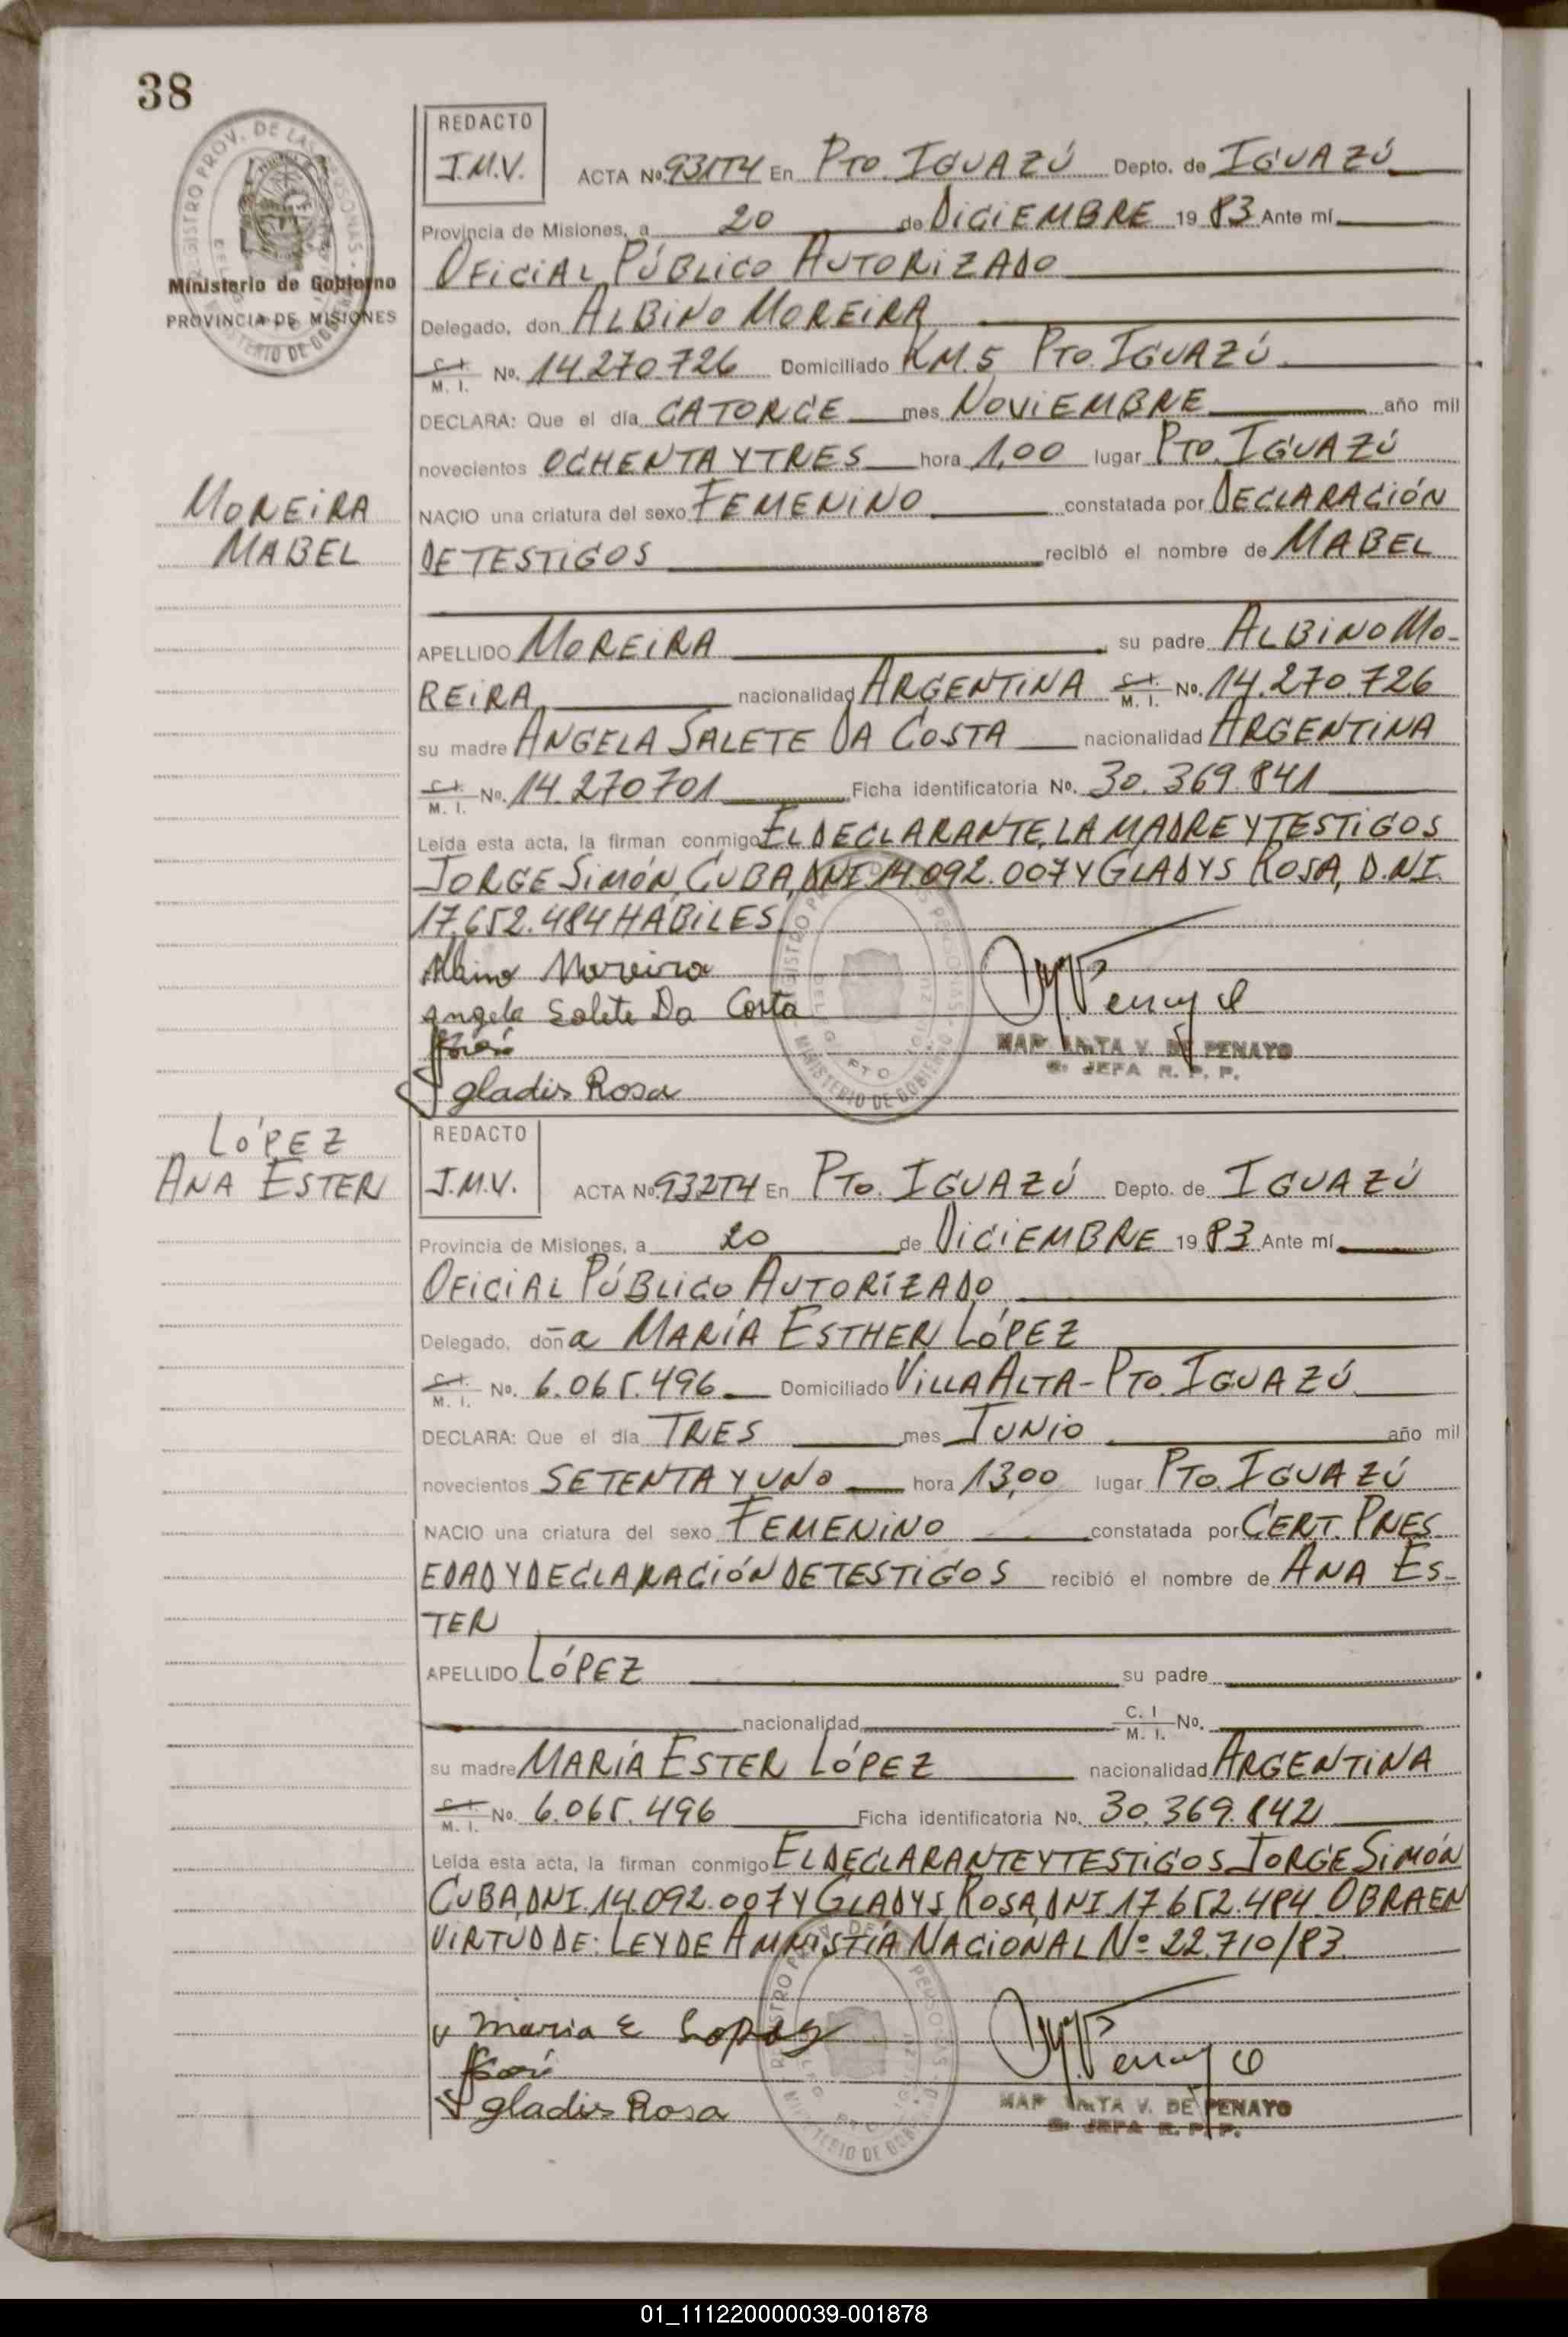 38
REGISTRO PROV. DE LAS PERSONAS
Ministerio de Gobierno
PROVINCIA DE MISIONES
MINISTERIO DE GOBIERNO
REDACTO
J.M.V.
ACTA No. 931T4 En PTO. IGUAZÚ Depto. de IGUAZÚ
Provincia de Misiones, a 20 de DICIEMBRE 19 83 Ante mí
OFICIAL PÚBLICO AUTORIZADO
Delegado, don ALBINO MOREIRA
C.I. M. I. No. 14.270.726 Domiciliado KM.5 PTO. IGUAZÚ
DECLARA: Que el día CATORCE mes NOVIEMBRE año mil
novecientos OCHENTA Y TRES hora 1,00 lugar PTO. IGUAZÚ
MOREIRA
MABEL
NACIO una criatura del sexo FEMENINO constatada por DECLARACIÓN
DE TESTIGOS recibió el nombre de MABEL
APELLIDO MOREIRA su padre ALBINO MO-
REIRA nacionalidad ARGENTINA C.I. M. I. No. 14.270.726
su madre ANGELA SALETE DA COSTA nacionalidad ARGENTINA
C.I. M. I. No. 14.270701 Ficha identificatoria No. 30.369.841
Leída esta acta, la firman conmigo EL DECLARANTE, LA MADRE Y TESTIGOS
JORGE SIMÓN CUBA, DNI. 14.092.007 Y GLADYS ROSA, D.NI.
17.652.484 HÁBILES.
Albino Moreira
Angela Salete Da Costa
gladis Rosa
V. DE PENAYO
JEFA R. P. P.
LÓPEZ
ANA ESTER
REDACTO
J.M.V.
ACTA No. 932T4 En PTO. IGUAZÚ Depto. de IGUAZÚ
Provincia de Misiones, a 20 de DICIEMBRE 19 83 Ante mí
OFICIAL PÚBLICO AUTORIZADO
Delegado, doña MARÍA ESTHER LÓPEZ
C.I. M. I. No. 6.065.496 Domiciliado VILLA ALTA - PTO. IGUAZÚ
DECLARA: Que el día TRES mes JUNIO año mil
novecientos SETENTA Y UNO hora 13,00 lugar PTO. IGUAZÚ
NACIO una criatura del sexo FEMENINO constatada por CERT. PRES
EDAD Y DECLARACIÓN DE TESTIGOS recibió el nombre de ANA ES-
TER
APELLIDO LÓPEZ su padre
nacionalidad C. I M. I. No.
su madre MARÍA ESTER LÓPEZ nacionalidad ARGENTINA
C.I. M. I. No. 6.065.496 Ficha identificatoria No. 30.369.842
Leída esta acta, la firman conmigo EL DECLARANTE Y TESTIGOS JORGE SIMÓN
CUBA, DNI. 14.092.007 Y GLADYS ROSA, DNI. 17.652.484. OBRA EN
VIRTUD DE: LEY DE AMNISTÍA NACIONAL Nº 22.710/83
maria E Lopez
gladis Rosa
V. DE PENAYO
JEFA R. P. P.
01_111220000039-001878